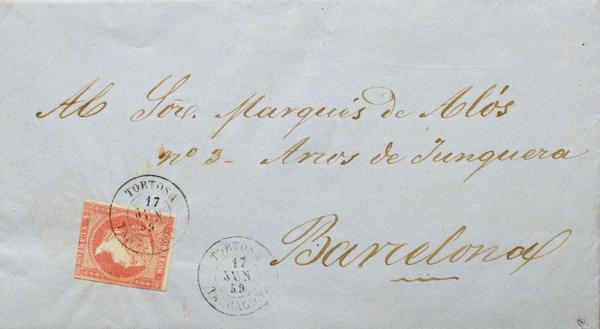 Al Sor. Marqués de Alós
nº 3 - Arcos de Junquera
Barcelona
TORTOSA
17
JUN
59
TORTOSA
17
JUN
59
TARRAGONA